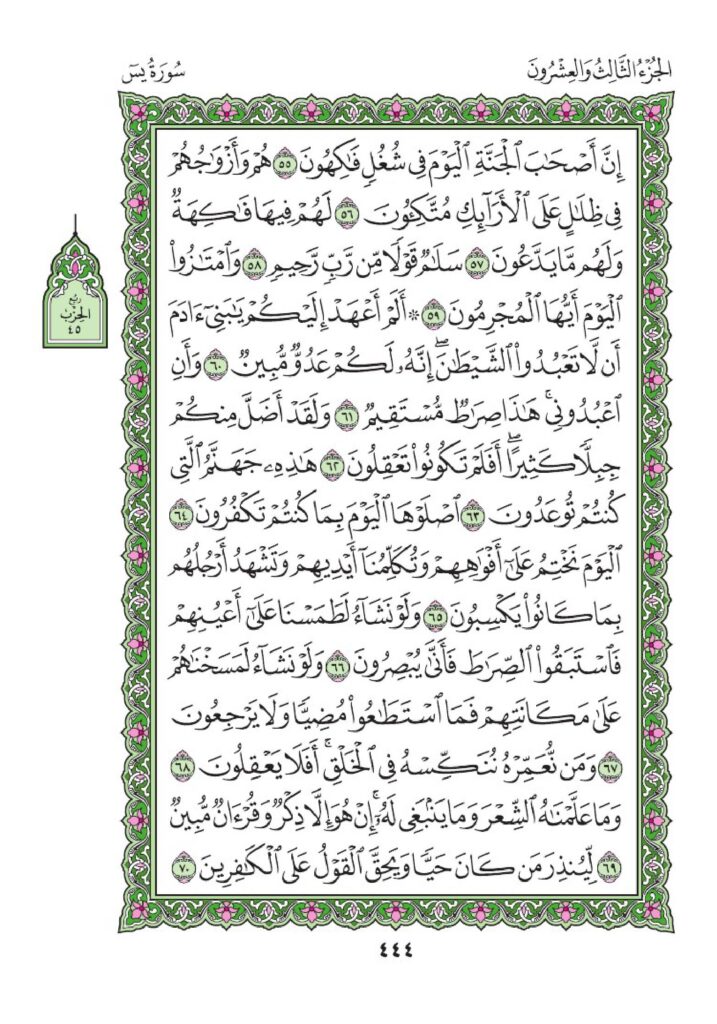 الجُزْءُ الثَّالِثُ وَالعِشْرُونَ
سُورَةُ يسٓ
إِنَّ أَصْحَٰبَ ٱلْجَنَّةِ ٱلْيَوْمَ فِى شُغُلٍ فَٰكِهُونَ ٥٥ هُمْ وَأَزْوَٰجُهُمْ
فِى ظِلَٰلٍ عَلَى ٱلْأَرَآئِكِ مُتَّكِـُٔونَ ٥٦ لَهُمْ فِيهَا فَٰكِهَةٌ
وَلَهُم مَّا يَدَّعُونَ ٥٧ سَلَٰمٌ قَوْلًا مِّن رَّبٍّ رَّحِيمٍ ٥٨ وَٱمْتَٰزُوا۟
ٱلْيَوْمَ أَيُّهَا ٱلْمُجْرِمُونَ ٥٩ ۞ أَلَمْ أَعْهَدْ إِلَيْكُمْ يَٰبَنِىٓ ءَادَمَ
أَن لَّا تَعْبُدُوا۟ ٱلشَّيْطَٰنَ ۖ إِنَّهُۥ لَكُمْ عَدُوٌّ مُّبِينٌ ٦٠ وَأَنِ
ٱعْبُدُونِى ۚ هَٰذَا صِرَٰطٌ مُّسْتَقِيمٌ ٦١ وَلَقَدْ أَضَلَّ مِنكُمْ
جِبِلًّا كَثِيرًا ۖ أَفَلَمْ تَكُونُوا۟ تَعْقِلُونَ ٦٢ هَٰذِهِۦ جَهَنَّمُ ٱلَّتِى
كُنتُمْ تُوعَدُونَ ٦٣ ٱصْلَوْهَا ٱلْيَوْمَ بِمَا كُنتُمْ تَكْفُرُونَ ٦٤
ٱلْيَوْمَ نَخْتِمُ عَلَىٰٓ أَفْوَٰهِهِمْ وَتُكَلِّمُنَآ أَيْدِيهِمْ وَتَشْهَدُ أَرْجُلُهُم
بِمَا كَانُوا۟ يَكْسِبُونَ ٦٥ وَلَوْ نَشَآءُ لَطَمَسْنَا عَلَىٰٓ أَعْيُنِهِمْ
فَٱسْتَبَقُوا۟ ٱلصِّرَٰطَ فَأَنَّىٰ يُبْصِرُونَ ٦٦ وَلَوْ نَشَآءُ لَمَسَخْنَٰهُمْ
عَلَىٰ مَكَانَتِهِمْ فَمَا ٱسْتَطَٰعُوا۟ مُضِيًّا وَلَا يَرْجِعُونَ
٦٧ وَمَن نُّعَمِّرْهُ نُنَكِّسْهُ فِى ٱلْخَلْقِ ۚ أَفَلَا يَعْقِلُونَ ٦٨
وَمَا عَلَّمْنَٰهُ ٱلشِّعْرَ وَمَا يَنۢبَغِى لَهُۥٓ ۚ إِنْ هُوَ إِلَّا ذِكْرٌ وَقُرْءَانٌ مُّبِينٌ
٦٩ لِّيُنذِرَ مَن كَانَ حَيًّا وَيَحِقَّ ٱلْقَوْلُ عَلَى ٱلْكَٰفِرِينَ ٧٠
ربع
الحِزْب
٤٥
٤٤٤